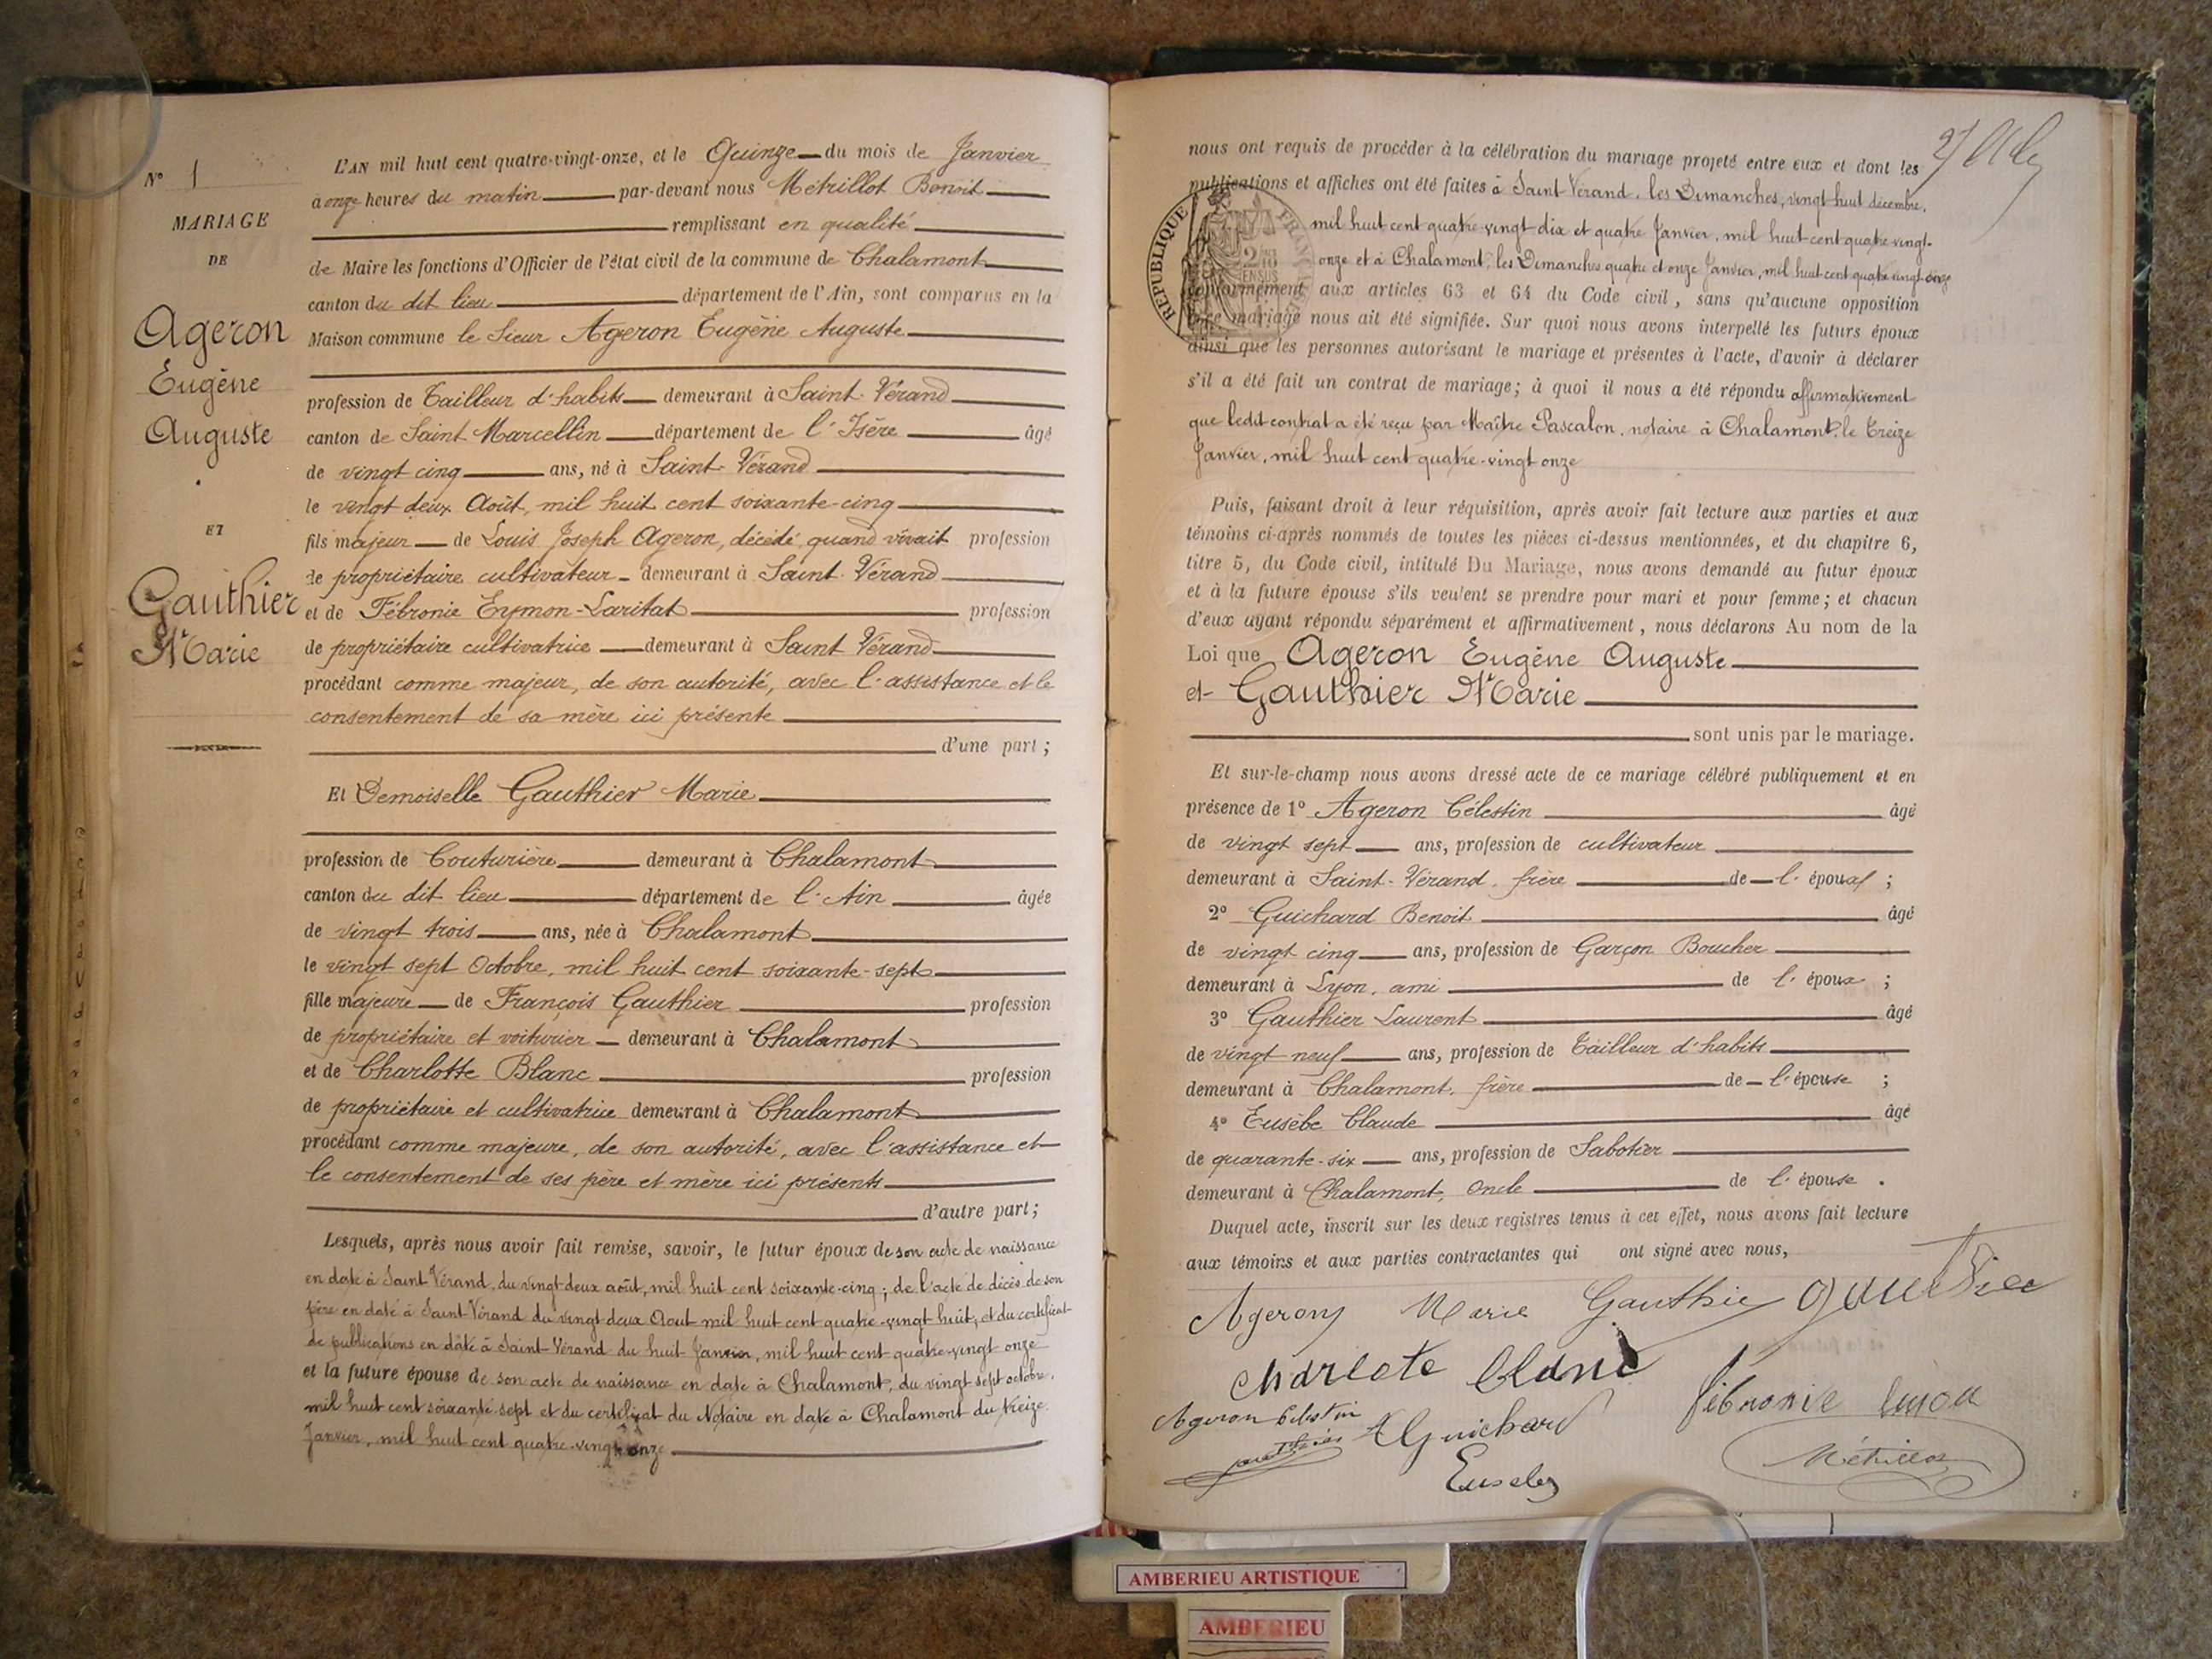 N° 1
MARIAGE
DE
Ageron
Eugène
Auguste
ET
Gauthier
Marie
L'AN mil huit cent quatre-vingt-onze, et le Quinze du mois de Janvier
à onze heures du matin par-devant nous Métrillot Benoit
remplissant en qualité
de Maire les fonctions d'Officier de l'état civil de la commune de Chalamont
canton du dit lieu département de l'Ain, sont comparus en la
Maison commune le Sieur Ageron Eugène Auguste
profession de Tailleur d'habits demeurant à Saint-Vérand
canton de Saint Marcellin département de l'Isère âgé
de vingt cinq ans, né à Saint-Vérand
le vingt deux Août, mil huit cent soixante-cinq
fils majeur de Louis Joseph Ageron, décédé, quand vivait profession
de propriétaire cultivateur demeurant à Saint-Vérand
et de Fébronie Eymon-Laritat profession
de propriétaire cultivatrice demeurant à Saint Vérand
procédant comme majeur, de son autorité, avec l'assistance et le
consentement de sa mère ici présente
d'une part;
Et Demoiselle Gauthier Marie
profession de Couturière demeurant à Chalamont
canton du dit lieu département de l'Ain âgée
de vingt trois ans, née à Chalamont
le vingt sept Octobre, mil huit cent soixante-sept
fille majeure de François Gauthier profession
de propriétaire et voiturier demeurant à Chalamont
et de Charlotte Blanc profession
de propriétaire et cultivatrice demeurant à Chalamont
procédant comme majeure, de son autorité, avec l'assistance et
le consentement de ses père et mère ici présents
d'autre part;
Lesquels, après nous avoir fait remise, savoir, le futur époux de son acte de naissance
en date à Saint-Vérand, du vingt-deux août, mil huit cent soixante-cinq; de l'acte de décès de son
père en date à Saint-Vérand du vingt-deux Aout mil huit cent quatre-vingt huit, et du certificat
de publications en date à Saint-Vérand du huit Janvier, mil huit cent quatre-vingt onze
et la future épouse de son acte de naissance en date à Chalamont, du vingt sept octobre,
mil huit cent soixante sept et du certificat du Notaire en date à Chalamont du treize
Janvier, mil huit cent quatre-vingt onze
nous ont requis de procéder à la célébration du mariage projeté entre eux et dont les
publications et affiches ont été faites à Saint Vérand, les Dimanches, vingt huit décembre,
mil huit cent quatre-vingt dix et quatre Janvier, mil huit cent quatre vingt-
onze et à Chalamont, les Dimanches quatre et onze Janvier, mil huit cent quatre vingt onze
REPUBLIQUE FRANÇAISE
conformément aux articles 63 et 64 du Code civil, sans qu'aucune opposition
à ce mariage nous ait été signifiée. Sur quoi nous avons interpellé les futurs époux
ainsi que les personnes autorisant le mariage et présentes à l'acte, d'avoir à déclarer
s'il a été fait un contrat de mariage; à quoi il nous a été répondu affirmativement
que ledit contrat a été reçu par Maître Pascalon, notaire à Chalamont, le Treize
Janvier, mil huit cent quatre-vingt onze
Puis, faisant droit à leur réquisition, après avoir fait lecture aux parties et aux
témoins ci-après nommés de toutes les pièces ci-dessus mentionnées, et du chapitre 6,
titre 5, du Code civil, intitulé Du Mariage, nous avons demandé au futur époux
et à la future épouse s'ils veulent se prendre pour mari et pour femme; et chacun
d'eux ayant répondu séparément et affirmativement, nous déclarons Au nom de la
Loi que Ageron Eugène Auguste
et Gauthier Marie
sont unis par le mariage.
Et sur-le-champ nous avons dressé acte de ce mariage célébré publiquement et en
présence de 1° Ageron Célestin âgé
de vingt sept ans, profession de cultivateur
demeurant à Saint-Vérand, frère de l'époux;
2° Guichard Benoit âgé
de vingt cinq ans, profession de Garçon Boucher
demeurant à Lyon, ami de l'époux;
3° Gauthier Laurent âgé
de vingt neuf ans, profession de Tailleur d'habits
demeurant à Chalamont, frère de l'épouse;
4° Eusèbe Claude âgé
de quarante-six ans, profession de Sabotier
demeurant à Chalamont, oncle de l'épouse.
Duquel acte, inscrit sur les deux registres tenus à cet effet, nous avons fait lecture
aux témoins et aux parties contractantes qui ont signé avec nous,
Ageron Marie Gauthier Gauthier
Charlote Blanc
fébronie
Ageron Célestin Guichard
Métrillot
AMBERIEU ARTISTIQUE
AMBERIEU